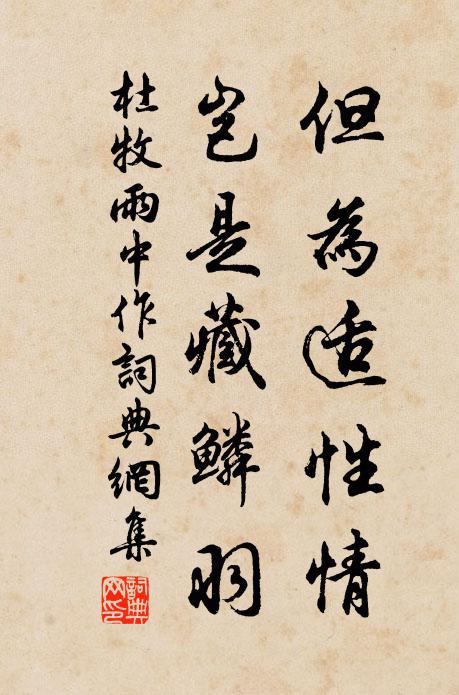 但為适性情
豈是藏鱗羽
杜牧雨中作詞典網集
詞典網印